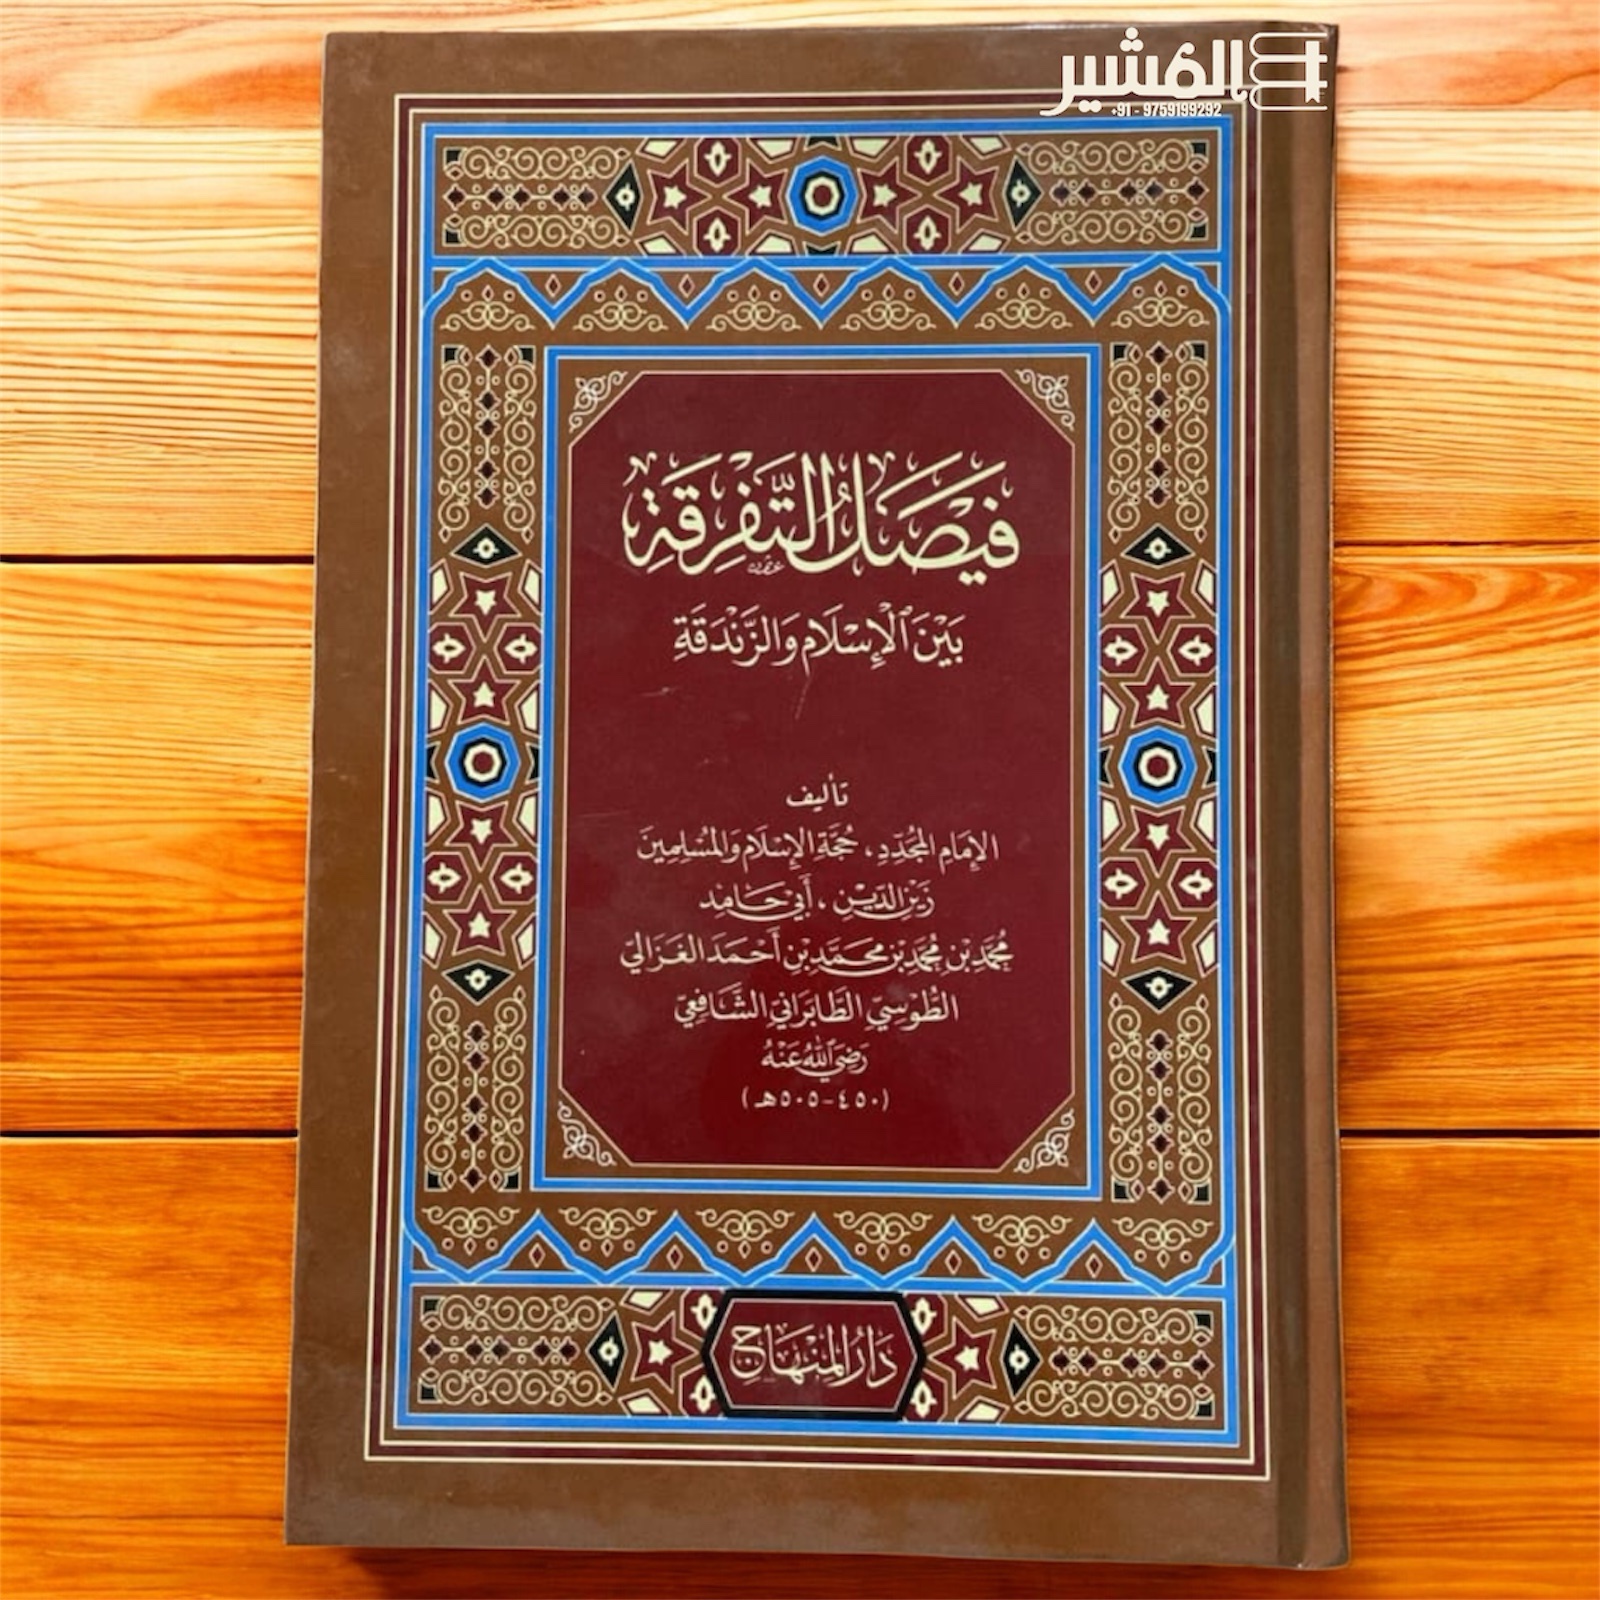 المشير
+91 - 9759199292
فَيْصَلُ التَّفْرِقَةِ
بَيْنَ ٱلْإِسْلَامِ وَالزَّنْدَقَةِ
تأليف
الإِمَامِ المُجَدِّدِ، حُجَّةِ الإِسْلَامِ وَالمُسْلِمِينَ
زَيْنِ الدِّيْنِ، أَبِي حَامِدٍ
مُحَمَّدِ بْنِ مُحَمَّدِ بْنِ مُحَمَّدِ بْنِ أَحْمَدَ الغَزَالِيِّ
الطُّوْسِيِّ الطَّابَرَانِيِّ الشَّافِعِيِّ
رَضِيَ ٱللهُ عَنْهُ
(٤٥٠-٥٠٥هـ)
دَارُ المِنْهَاجِ